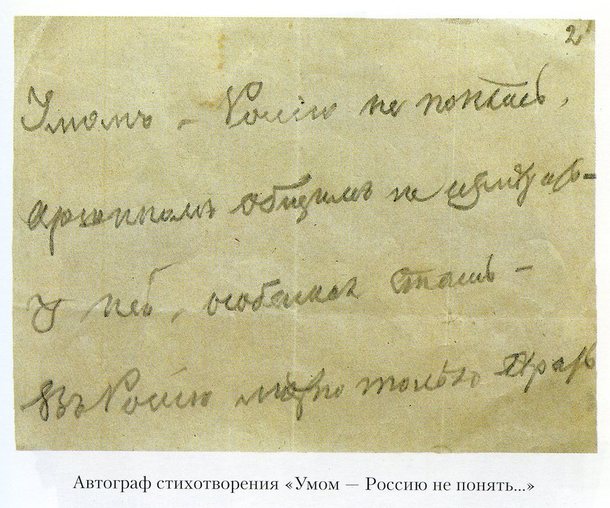 2
Умомъ – Россію не понять,
Аршиномъ общимъ не измѣрить –
У ней, особенная стать –
Въ Россію можно только вѣрить
Автограф стихотворения «Умом — Россию не понять...»